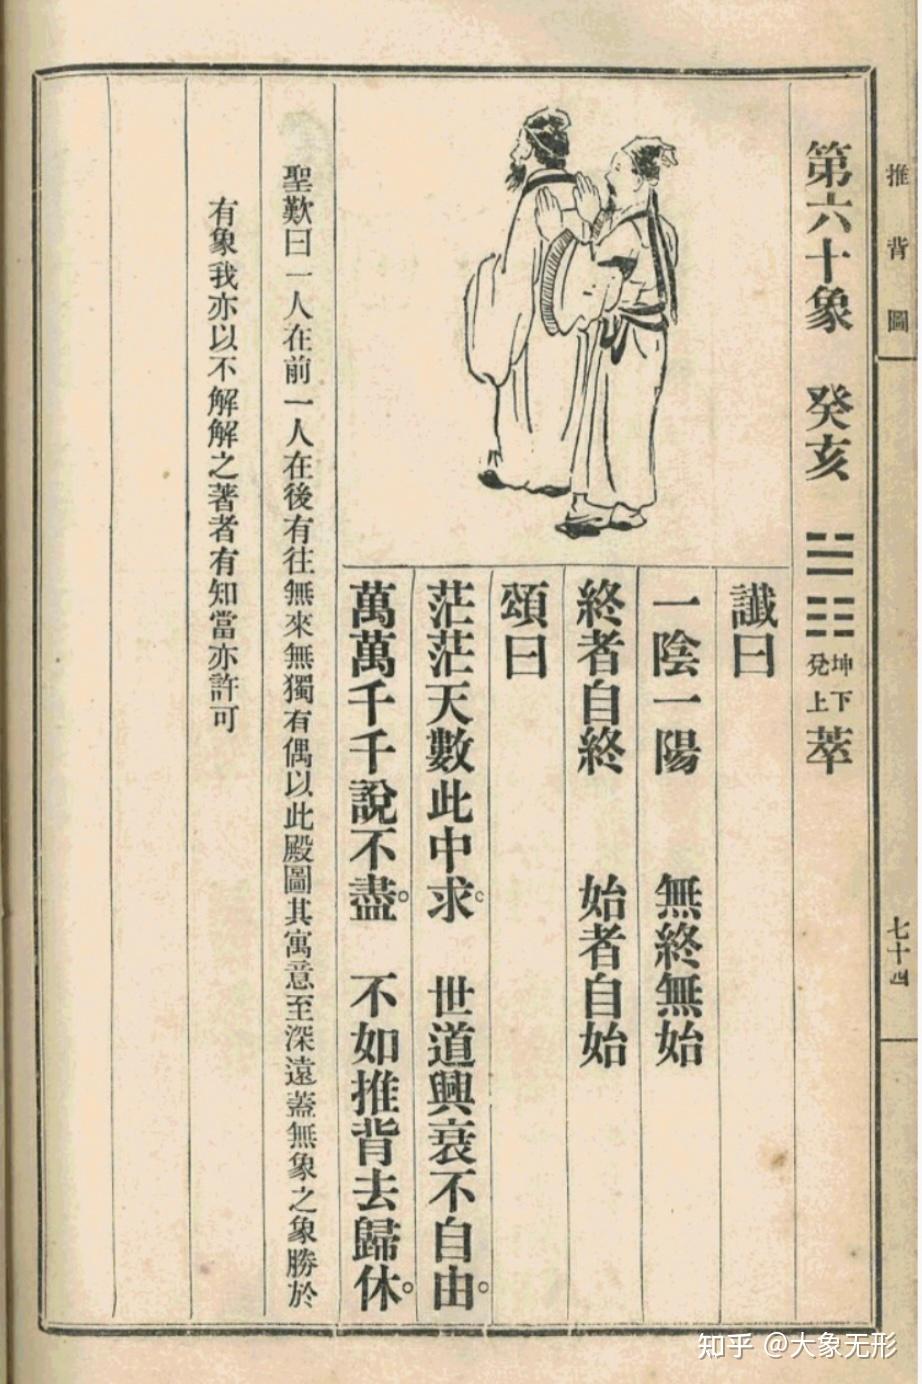 推背圖
七十四
第六十象 癸亥 坤下兌上 萃
讖曰
一陰一陽 無終無始
終者自終 始者自始
頌曰
茫茫天數此中求。 世道興衰不自由。
萬萬千千說不盡。 不如推背去歸休。
聖歎曰一人在前一人在後有往無來無獨有偶以此殿圖其寓意至深遠蓋無象之象勝於
有象我亦以不解解之著者有知當亦許可
知乎 @大象无形